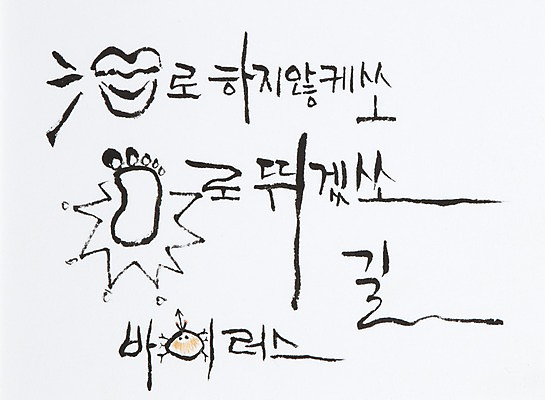 로 하지않케쏘
로 뛰겠쏘
길
바이러스